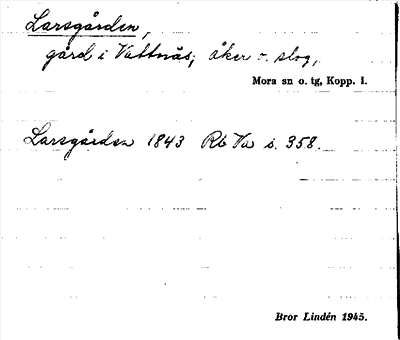 Larsgården,
gård i Vattnäs; åker o. slog,
Mora sn o. tg, Kopp. l.
Larsgården 1843 Rb Va s. 358.
Bror Lindén 1945.